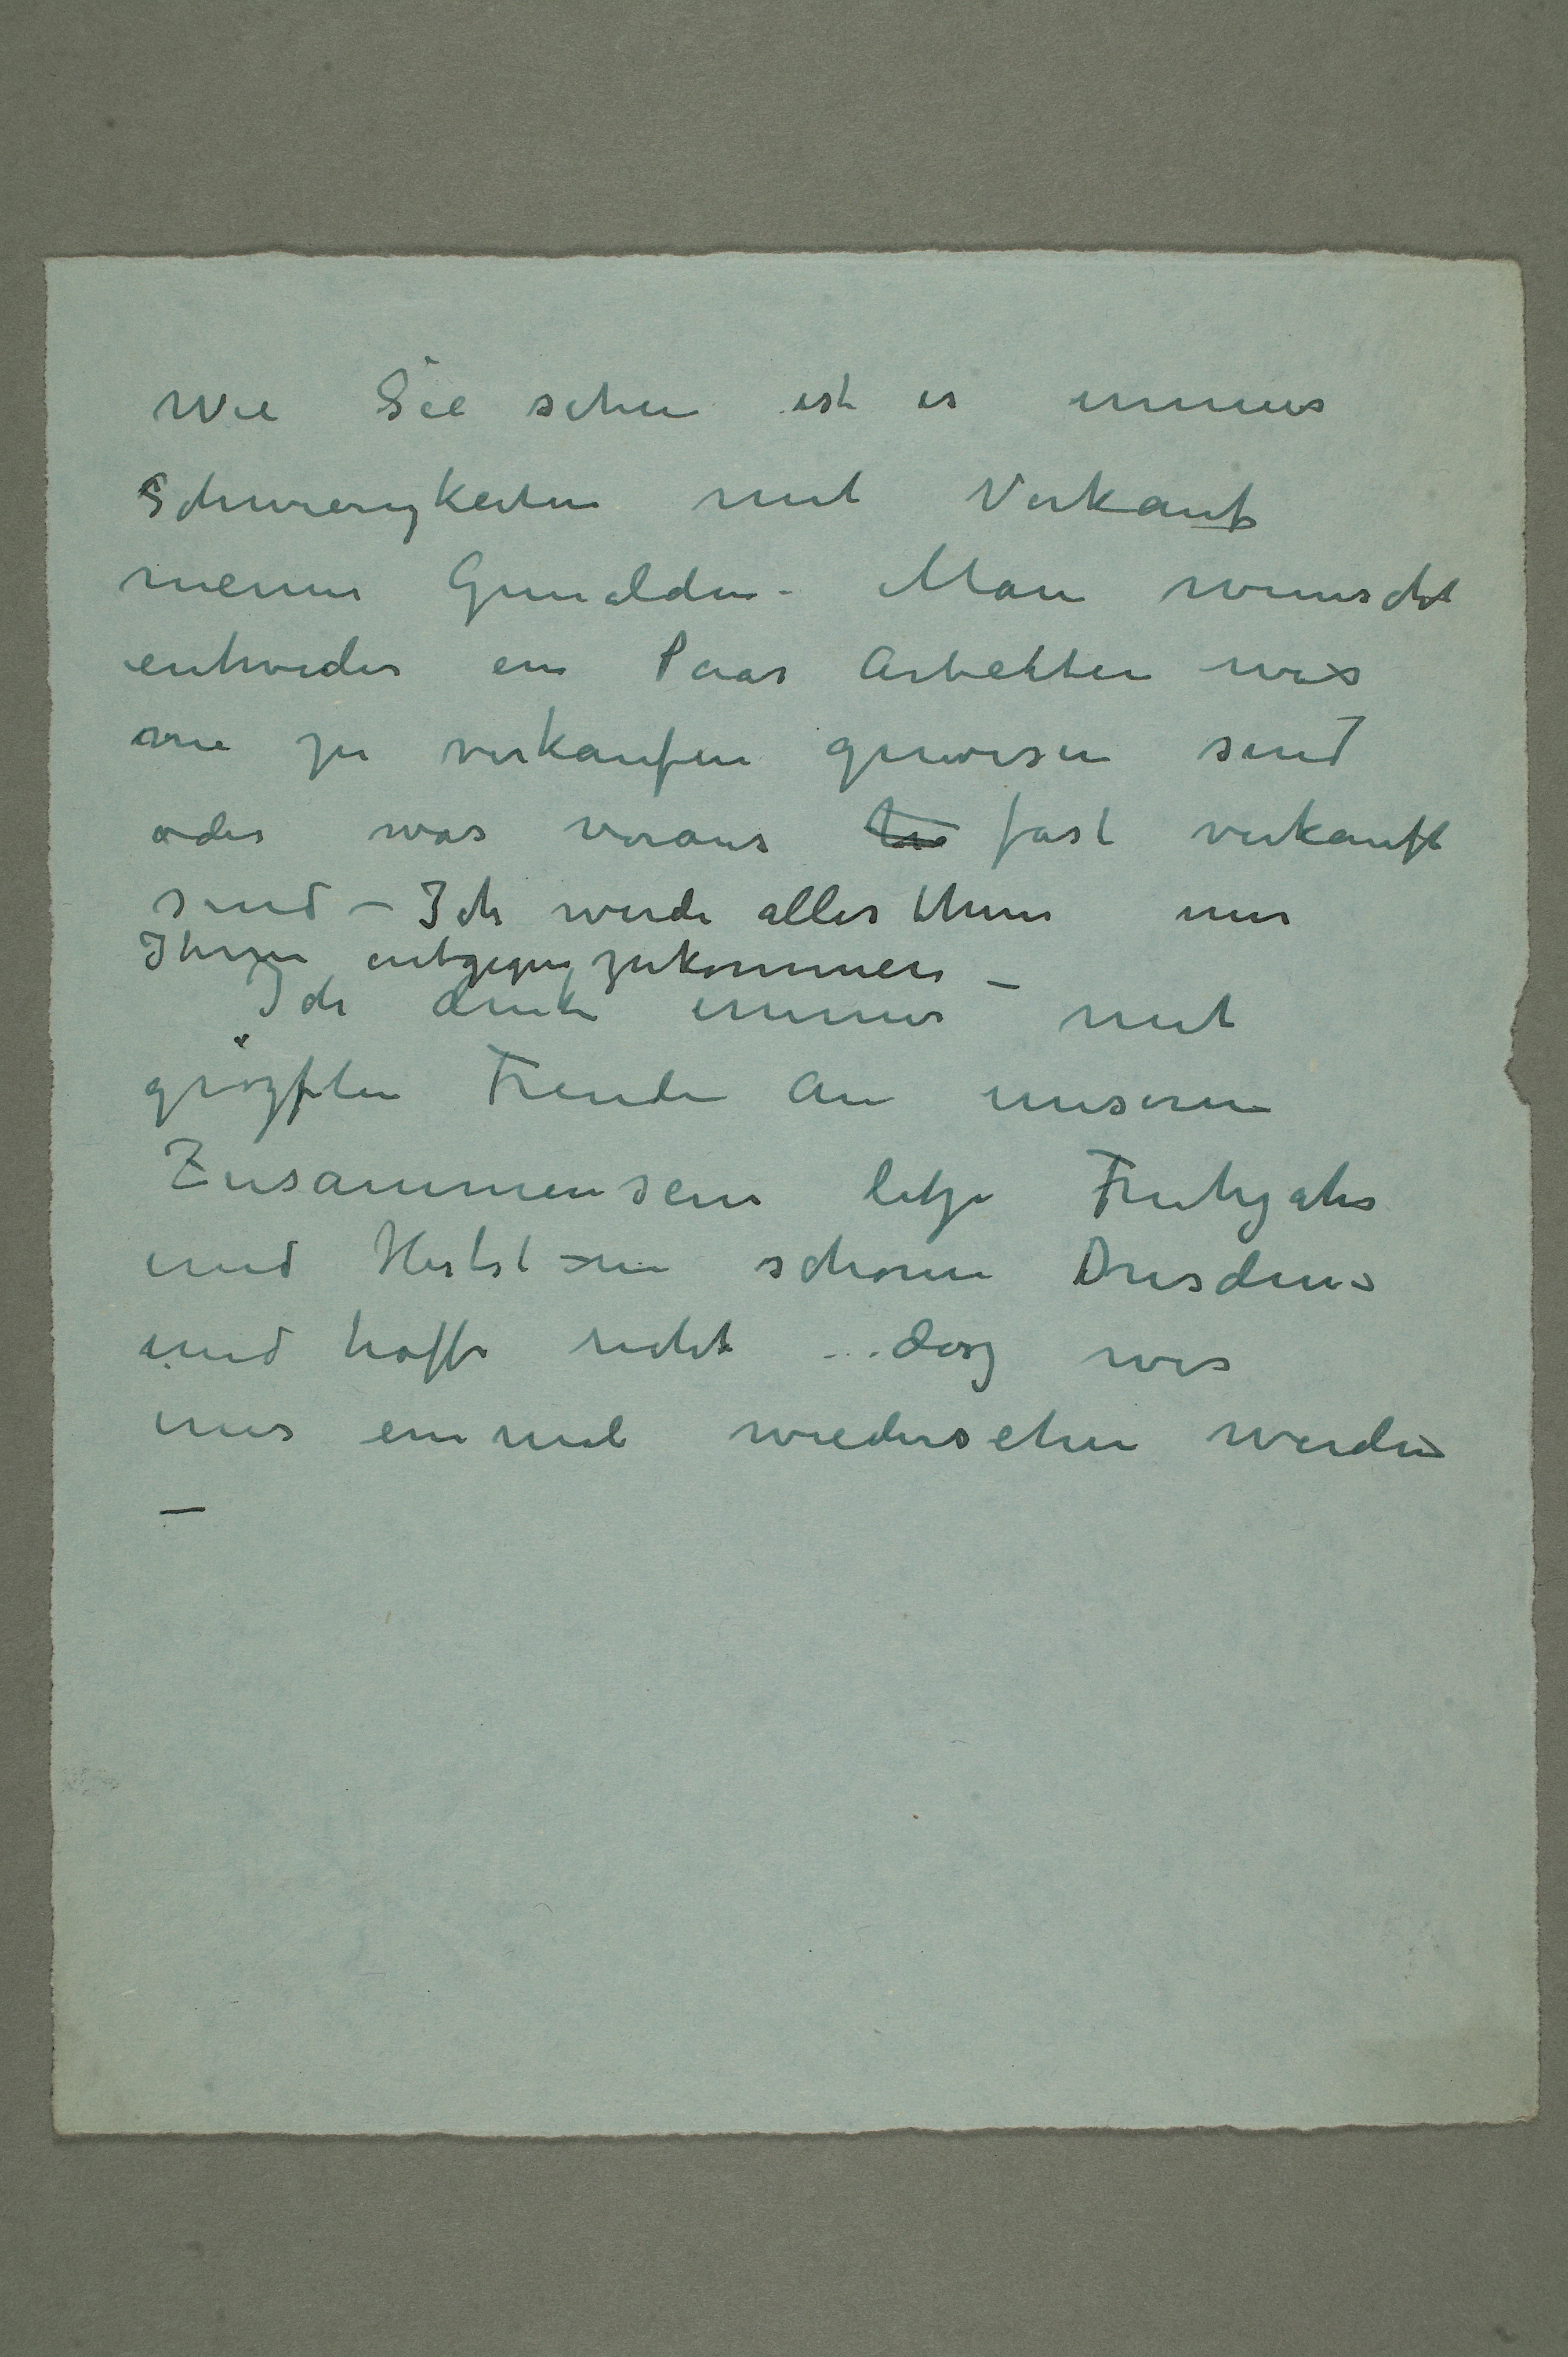 Wie Sie sehen ist es immer
Schwierigkeiten mit Verkauf
meiner Gemälden – Man wünscht
entweder ein Paar Arbeiten was
nie zu verkaufen gewesen sind
oder was voraus fast verkauft
sind – Ich werde alles thun um
Ihnen entgegenzukommen –
Ich denke immer mit
grözsten Freude an unseren
Zusammensein letze Fruhjahr
und Herbst im schönen Dresden
und hoffe recht dasz wir
uns einmal wiedersehen werden
–